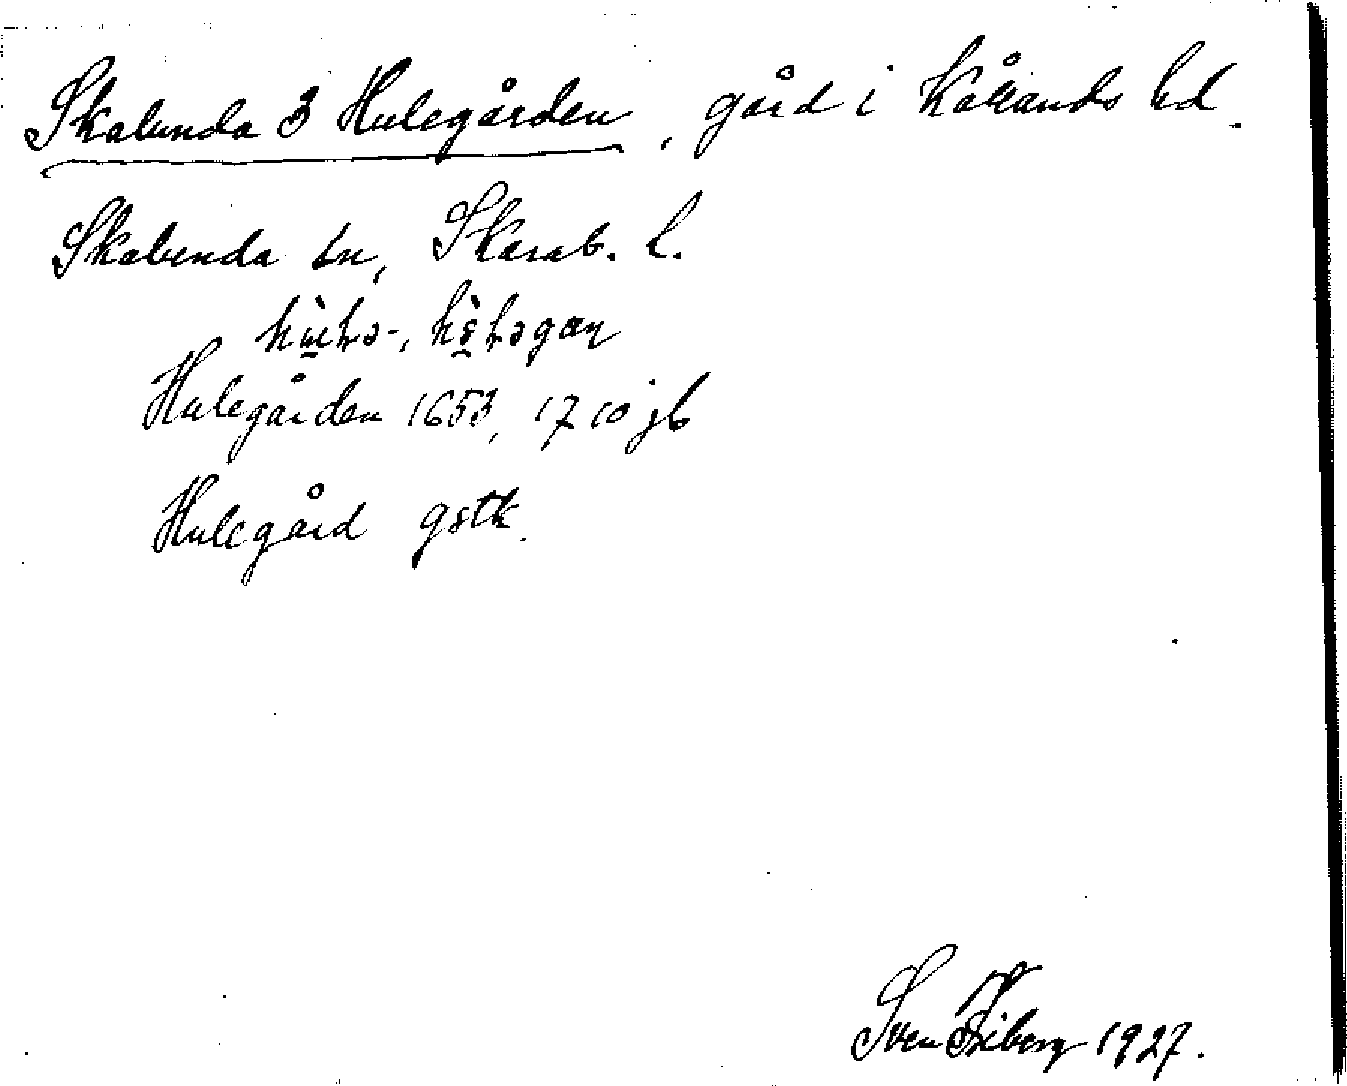 Skalunda 3 Hulegården, gård i Kållands hd.
Skalunda sn, Skarab. l.
Hulegården 1653, 1710 jb
Hulegård gstk.
Sven Friberg 1927.